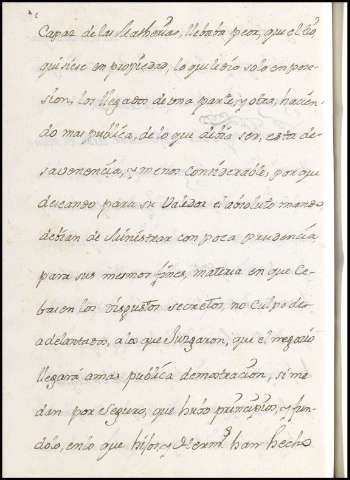 Capaz de las Matherias, llebara peor, que el tio
quisiese en propiedad, lo que le dio solo en pen-
sion, los llegados de una parte, y otra, hacien-
do mas publica, de lo que debia ser, esta de-
savenencia, y menos considerable, por que
deseando para su Valedor el absoluto mando
debian de Suministrar con poca prudencia
para sus mesmos fines, materia en que Ce-
bar en los disgustos secretos, no culpo des-
adelantado, a los que Jusgaron, que el negocio
llegara a mas publica demostracion, si me
dan por seguro, que hubo principios, y fun-
dolo, en lo que hijos, y Herm.s han hecho